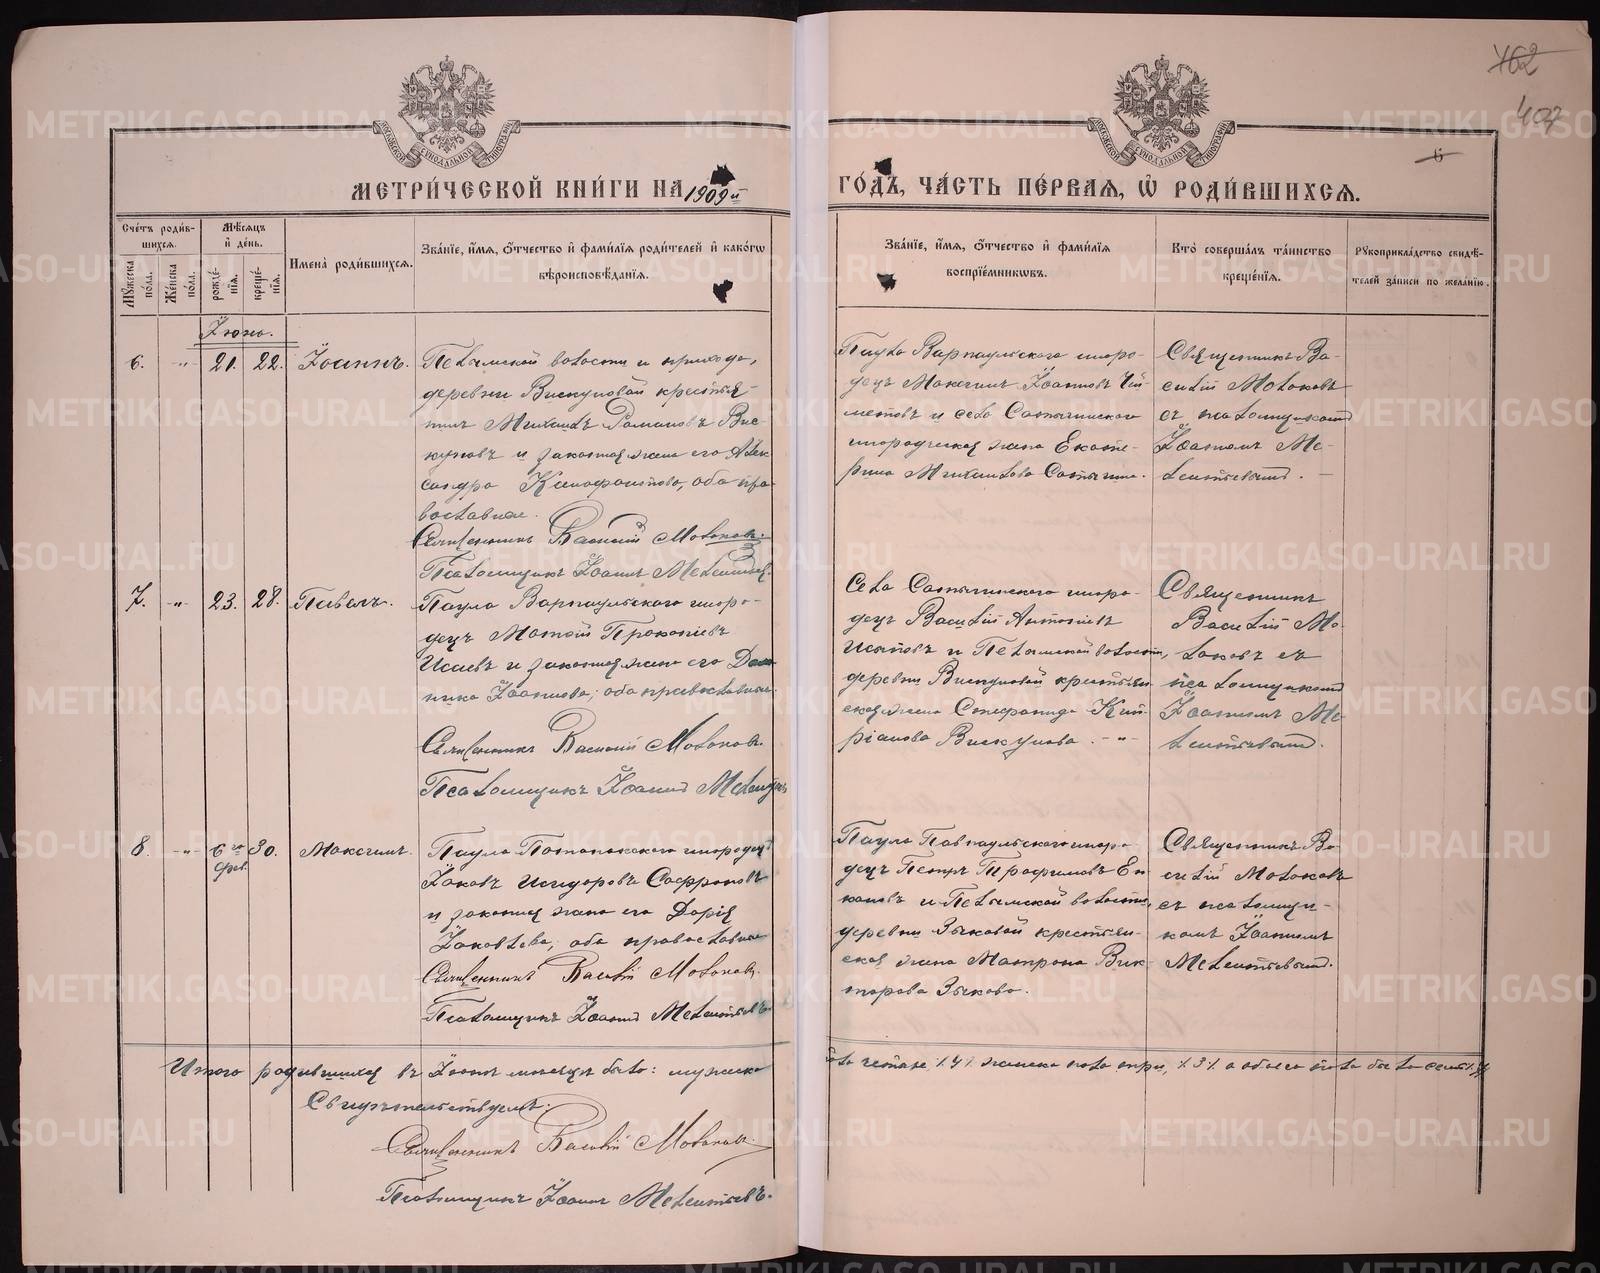 462
407
6
МЕТРИ́ЧЕСКОЙ КНИ́ГИ НА 1909й ГО́ДЪ, ЧА́СТЬ ПЕ́РВАЯ, Ѡ҆ РОДИ́ВШИХСЯ.
Сче́тъ роди́в-
шихся.
Мѣ́сяцъ
и҆ де́нь.
Му́жеска по́ла.
Же́нска по́ла.
рожде́-
нїя.
креще́-
нїя.
И҆мена̀ роди́вшихся.
Зва́нїе, и҆́мя, ѻ҆́тчество и҆ фами́лїя роди́телей и҆ како́гѡ
вѣроисповѣ́данїя.
Зва́нїе, и҆́мя, ѻ҆́тчество и҆ фами́лїя
воспрїе́мникѡвъ.
Кто̀ соверша́лъ та́инство
креще́нїя.
Рꙋкоприкла́дство свидѣ́-
телей за́писи по жела́нїю.
Іюнь.
6.
"
21.
22.
Іоаннъ.
Пелымской волости и прихода,
деревни Вискуновой крестья-
нинъ Михаилъ Романовъ Вис-
куновъ и законная жена его Алек
сандра Ксенофонтова, оба пра-
вославные.
Священникъ Василий Молоковъ.
Псаломщикъ Іоаннъ Мелентьевъ.
Паула Варпаульскаго иноро-
децъ Максимъ Іоанновъ
и села Сатыгинскаго
инородческая жена Екате-
рина Михаилова Сатыгина.
Священникъ Ва-
силій Молоковъ
съ псаломщикомъ
Іоанномъ Ме-
лентьевымъ.
7.
"
23.
28.
Павелъ.
Паула Варпаульскаго иноро-
децъ Матѳій Прокопіевъ
Исаевъ и законная жена его Дом
ника Іоаннова, оба православные.
Священникъ Василий Молоковъ.
Псаломщикъ Іоаннъ Мелентьевъ
Села Сатыгинскаго иноро-
децъ Василій Антоніевъ
и Пелымской волости,
деревни Вискуновой крестьян
ская жена Стефанида Кип-
ріанова Вискунова. - " -
Священникъ
Василій Мо-
локовъ съ
псаломщикомъ
Іоанномъ Ме-
лентьевымъ.
8.
"
6го
Фев.
30.
Максимъ.
Паула инородецъ
Іаковъ Исидоровъ Сафроновъ
и законная жена его Дарія
Іаковлева, оба православные
Священникъ Василій Молоковъ.
Псаломщикъ Іоаннъ Мелентьевъ
Паула иноро-
децъ Петръ Трофимовъ Ен
ковъ и Пелымской волости,
деревни Зыковой крестьян-
ская жена Матрона Вик-
торова Зыкова.
Священникъ Ва-
силій Молоковъ
съ псаломщи-
комъ Іоанномъ
Мелентьевымъ.
Итого родившихся въ Іюнѣ мѣсяцѣ было: мужска пола четыре /4/ женска пола три, /3/ а обоего пола было семь /7/
Свидѣтельствуемъ:
Священникъ Василій Молоковъ.
Псаломщикъ Іоаннъ Мелентьевъ.
METRIKI.GASO-URAL.RU